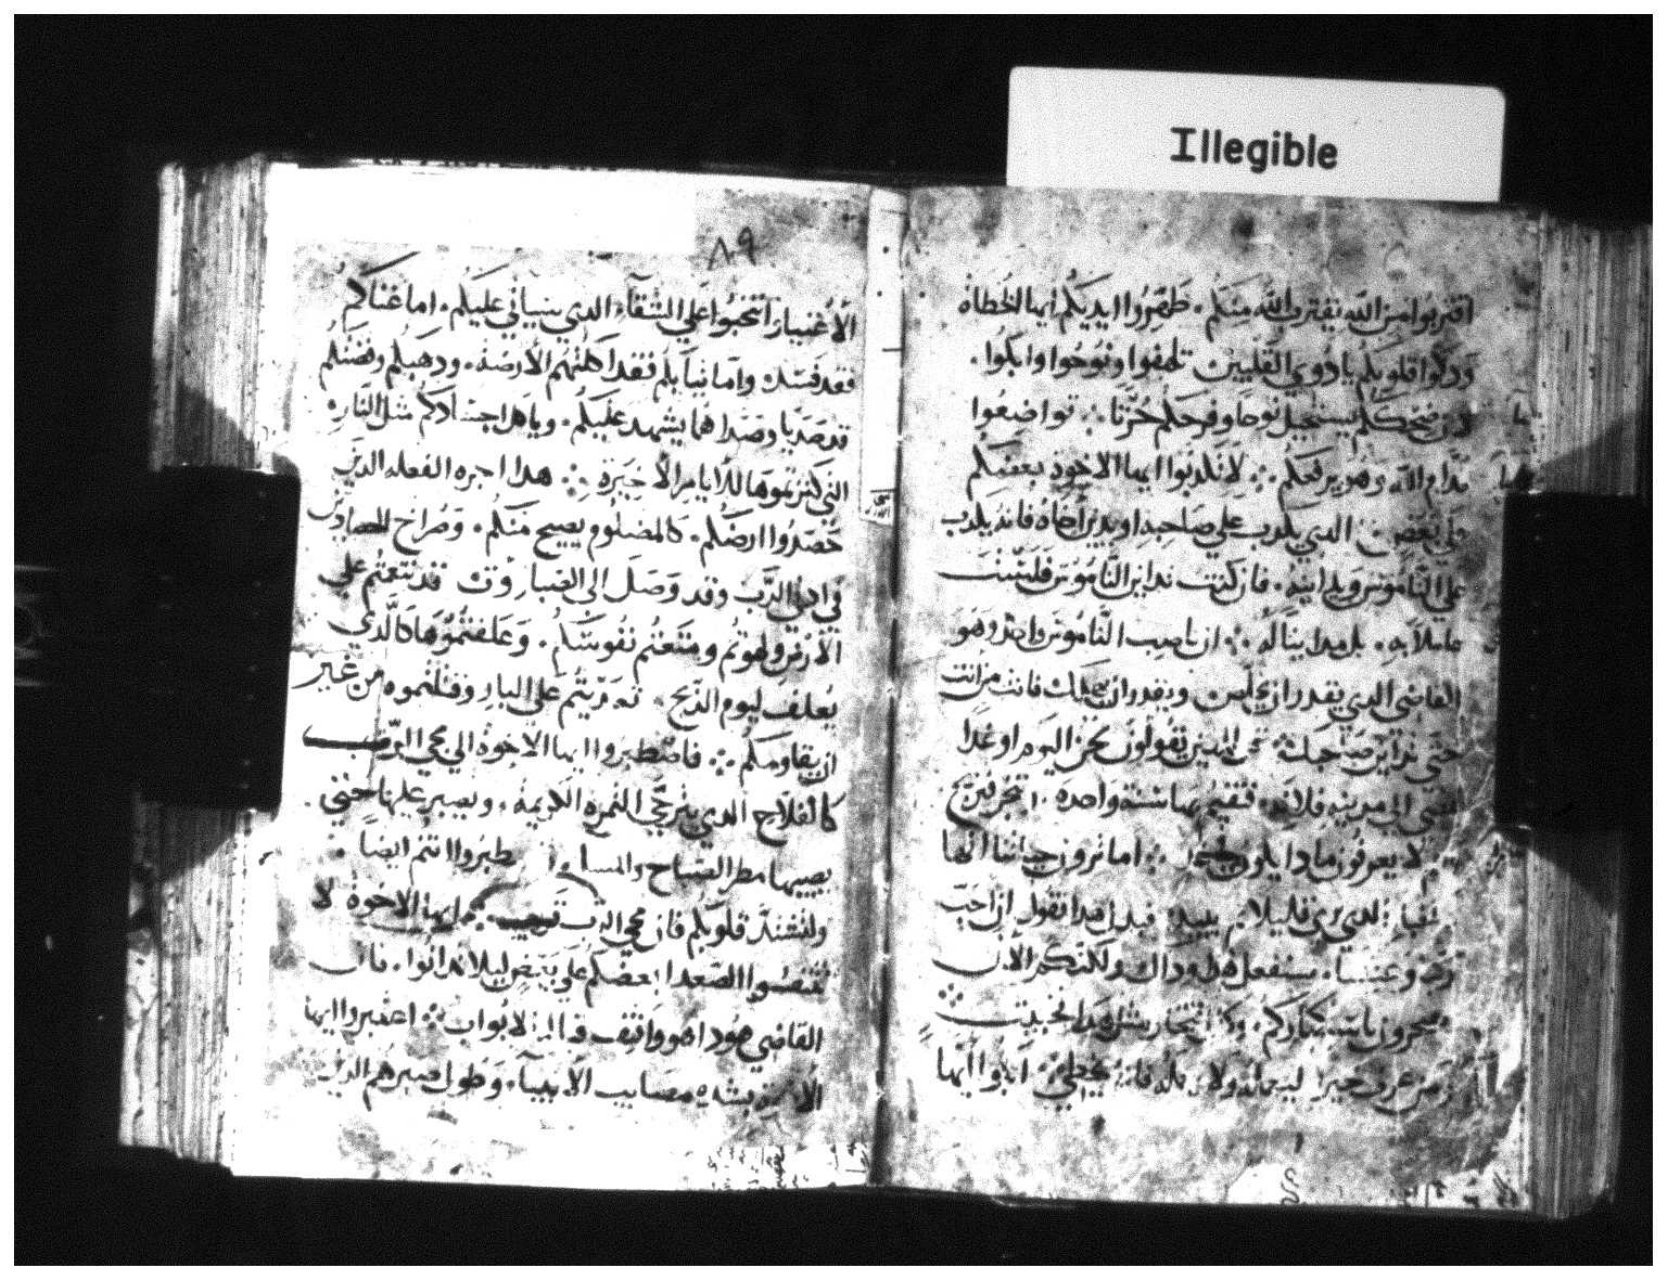 Illegible
اقتربوا من الله يقترب الله منكم. طهروا ايديكم ايها الخطاه
وذكوا قلوبكم يا ذوي القلبين تلهفوا ونوحوا وابكوا.
لان ضحككم يستحيل نوحا وفرحكم حزنا. تواضعوا
قدام الله وهو يرفعكم. لا تكذبوا ايها الاخوه بعضكم
علي بعض. الذي يكذب علي صاحبه او يدين اخاه فانه يكذب
علي الناموس ويداينه. فان كنت تداين الناموس فلست
عاملا به. بل مداينا له. ان ناصب الناموس واحد وهو
القاضي الذي يقدر ان يخلص ويقدر ان يهلك فانت من انت
حتي تداين صاحبك الذين تقولون نحن اليوم او غدا
نمضي الي مدينه فلانه. فنقيم بها سنة واحدة. نتجر فنربح
لا يعرفون ماذا يكون اما ترون حياتنا انها
الذي يري قليلا ثم يبيد. فبدل هذا نقول ان احب
الرب وعشنا. سنفعل هذا وذاك ولكنكم الان
تفتخرون باستكباركم. وكل افتخار مثل هذا خبيث
ومن عرف خيرا ليعمله ولا يعمله فانه يخطي. ابكوا ايها
٨٩
الاغنيا. انتحبوا علي الشقاء الذي سياتي عليكم. اما غناكم
فقد فسد. واما ثيابكم فقد اكلتهم الارضة. وذهبكم وفضتكم
قد صديا وصداهما يشهد عليكم. وياكل اجسادكم مثل النار
التي كنزتموها للايام الاخيرة. هذا اجره الفعله الذين
حصدوا ارضكم. كالمضلوم يصيح منكم. وصراخ الحصادين
في اذني الرب وقد وصل الي الصباووت قد تنعمتم علي
الارض ولهوتم ومتعتم نفوسكم. وعلفتموها كالذي
يعلف ليوم الذبح. تعديتم علي البار وقتلتموه من غير
ان يقاومكم. فاصطبروا ايها الاخوة الي مجي الرب
كالفلاح الذي يترجي الثمره الكريمة. ويصبر عليها حتي
يصيبها مطر الصباح والمسا اصطبروا انتم ايضا.
ولتشتد قلوبكم فان مجي الرب قريب. ايها الاخوة لا
تتنفسوا الصعدا بعضكم علي بعض ليلا تدانوا. فان
القاضي هوذا هو واقف قدام الابواب. اعتبروا ايها
الاخوه بشده مصايب الانبيا. وطول صبرهم الذين